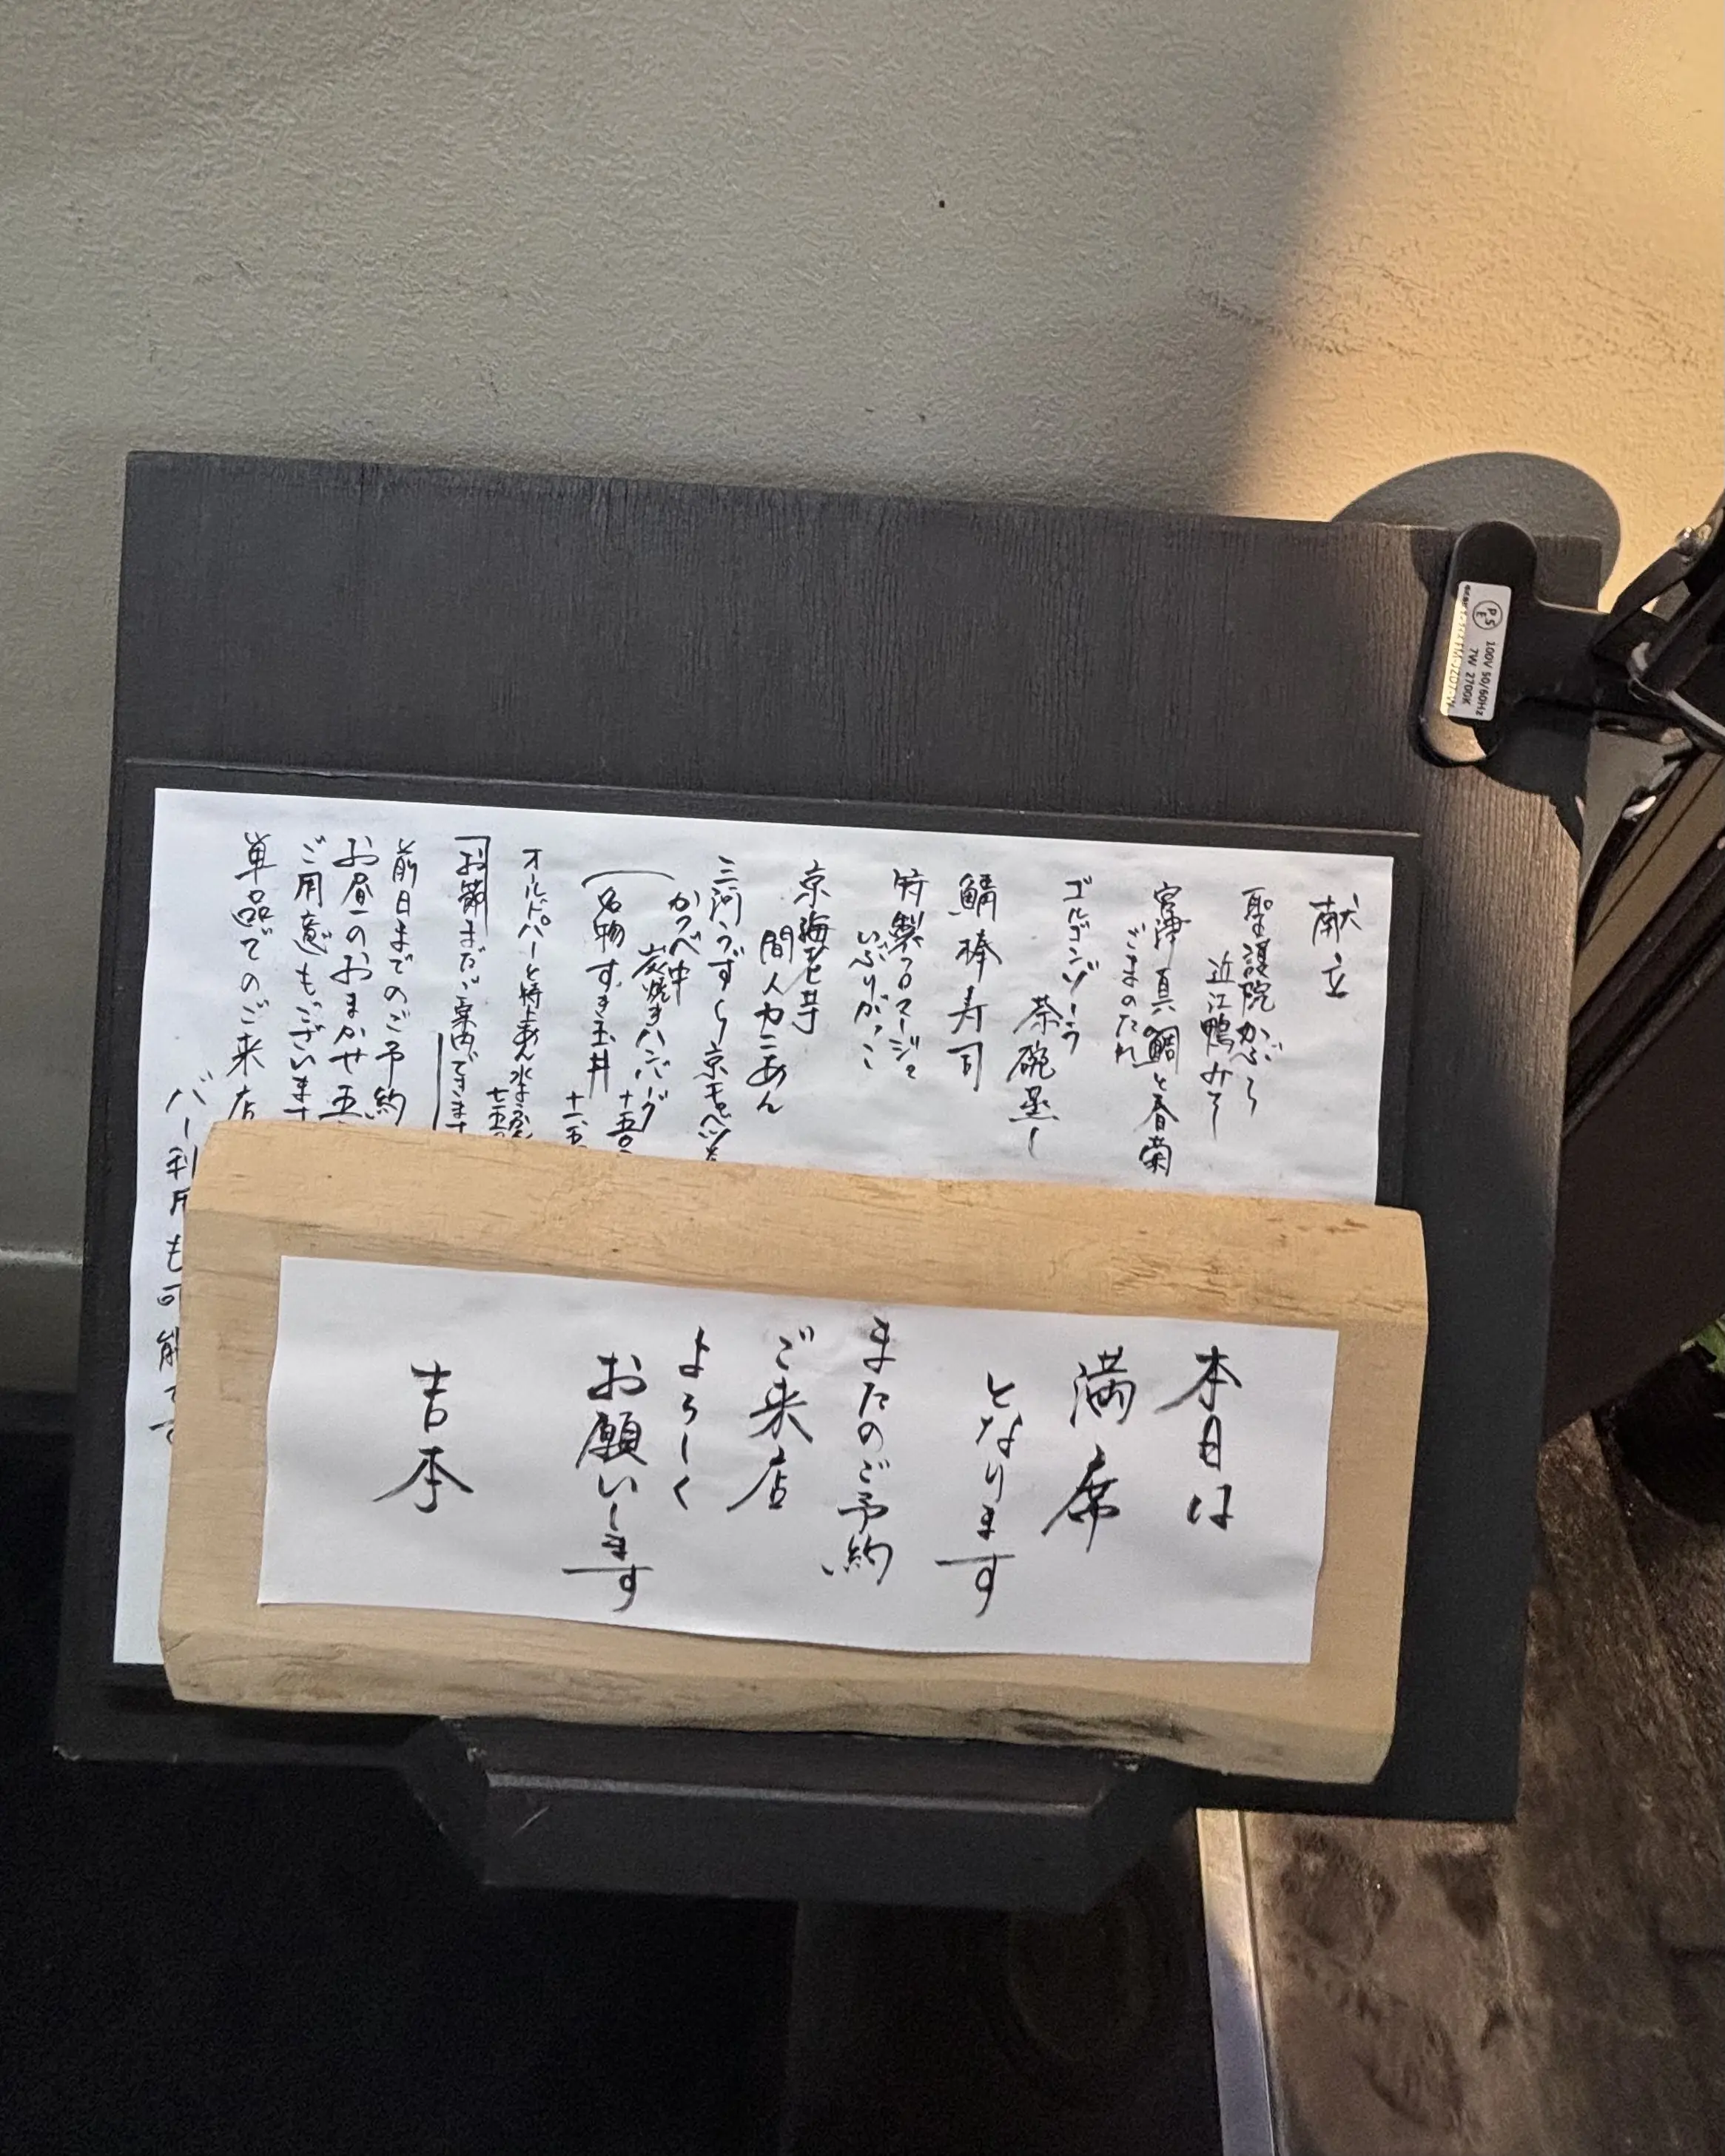 献立
聖護院かぶら
近江鴨みそ
宮津 真鯛と春菊
ごまのたれ
ゴルゴンゾーラ
茶碗蒸し
鯖棒寿司
特製
いぶりがっこ
京海老芋
間人カニあん
三河うずら 京キャベツ
かつべ牛
炭焼きハンバーグ
名物 すき玉丼
オールドパーと特上あん水ようかん
お節まだご案内できます
前日までのご予約
お昼のおまかせ 五
ご用意もございます
単品でのご来店
バー利用も可能です
本日は
満席
となります
またのご予約
ご来店
よろしく
お願いします
吉本
PSE
100V 50/60Hz
7W 2700K